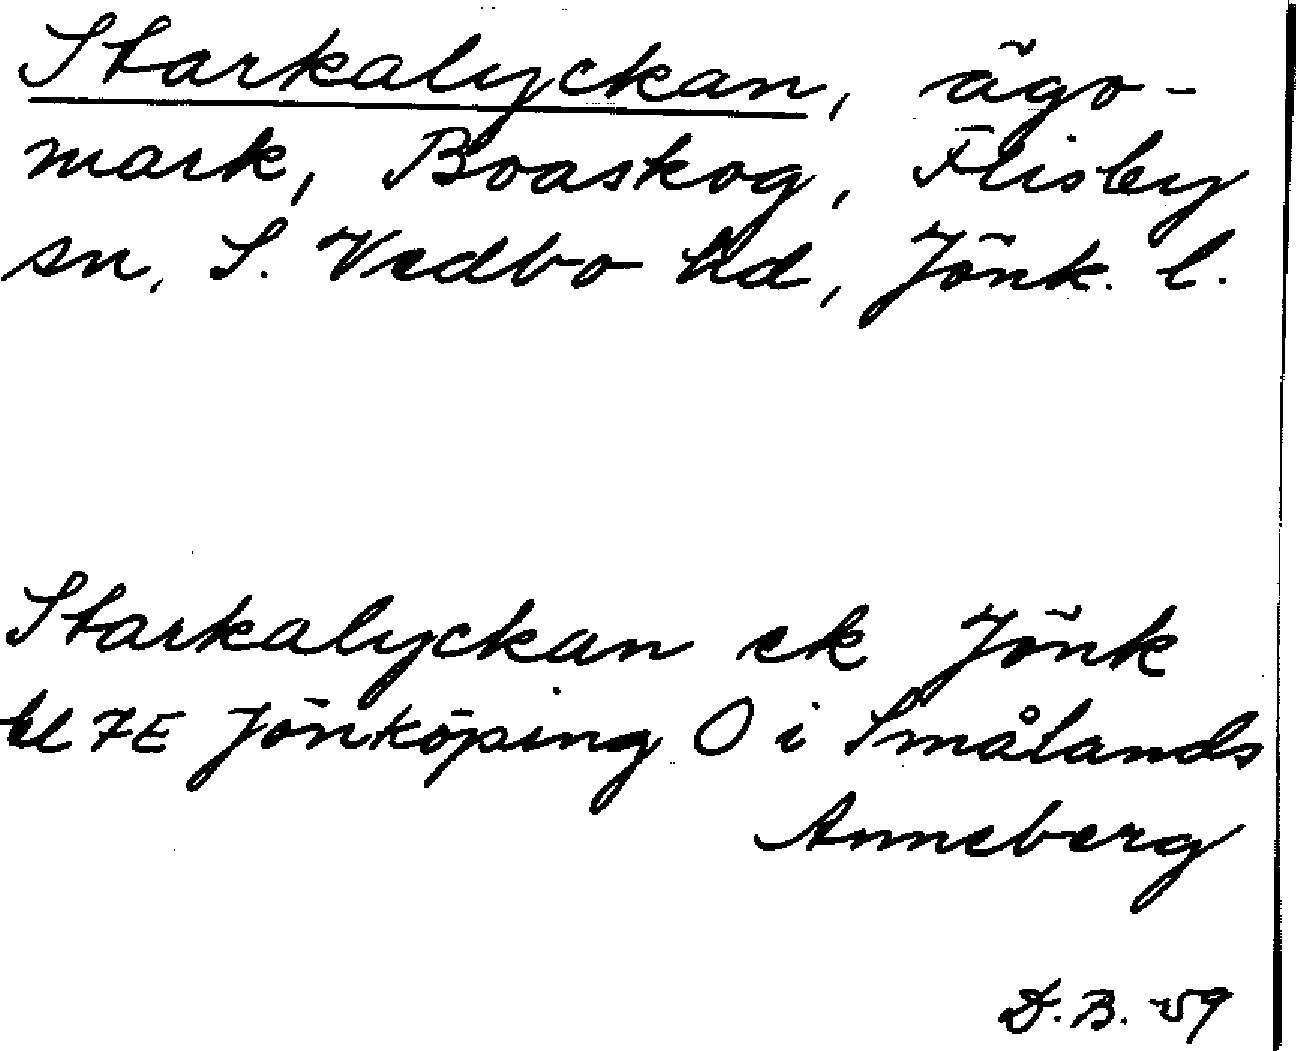 Starkalyckan, ägo-
mark, Boaskog, Flisby
sn, S. Vedbo hd, Jönk. l.
Starkalyckan ek Jönk
bl 7E Jönköping O i Smålands
Anneberg
D.B. 59